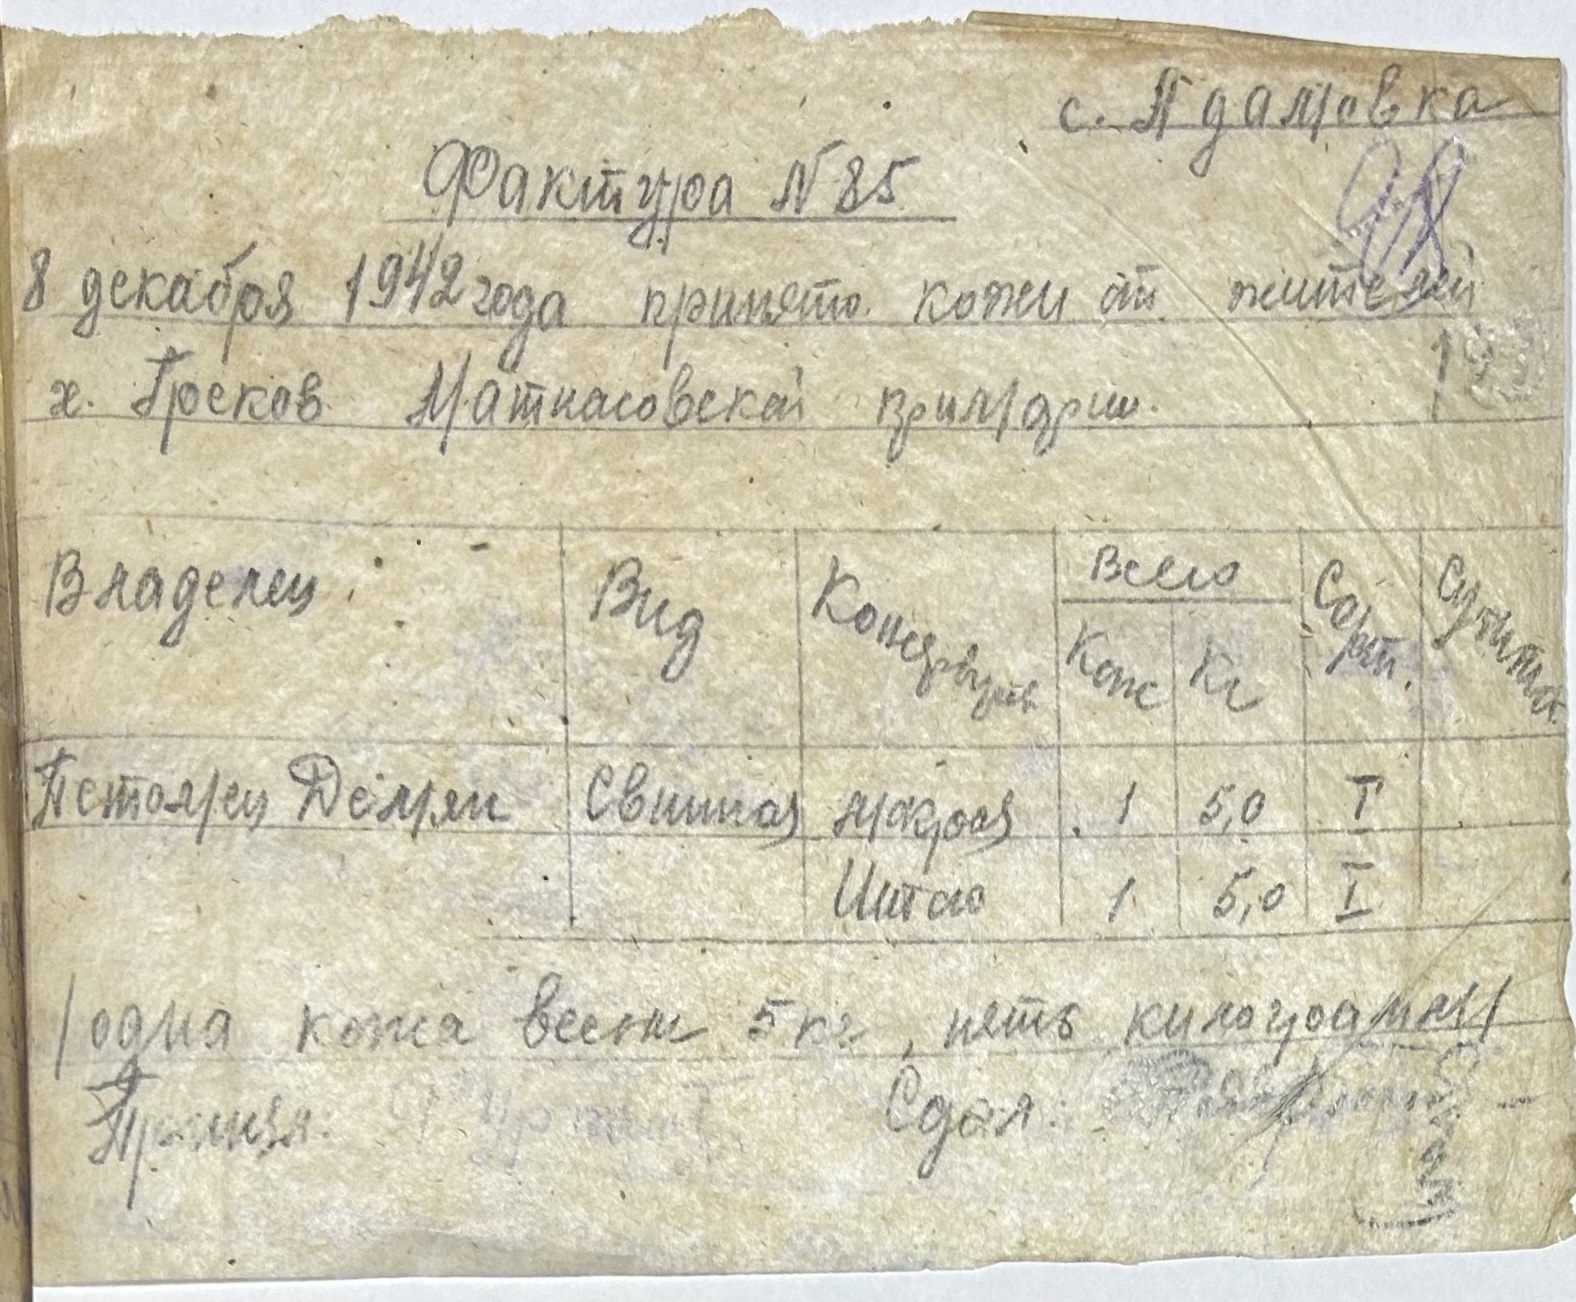 с. Адамовка
Фактура N 85
8 декабря 1942 года принято кожи от жителей
х. Греков Матиасовской примарии.
Владелец Вид Консервуров Всего Сорт. Сучитка
Кож Кг
Петомец Демян Свиная мокрая 1 5,0 I
Итого 1 5,0 I
/одна кожа весом 5 кг, пять килограмм/
Принял: Сдал: